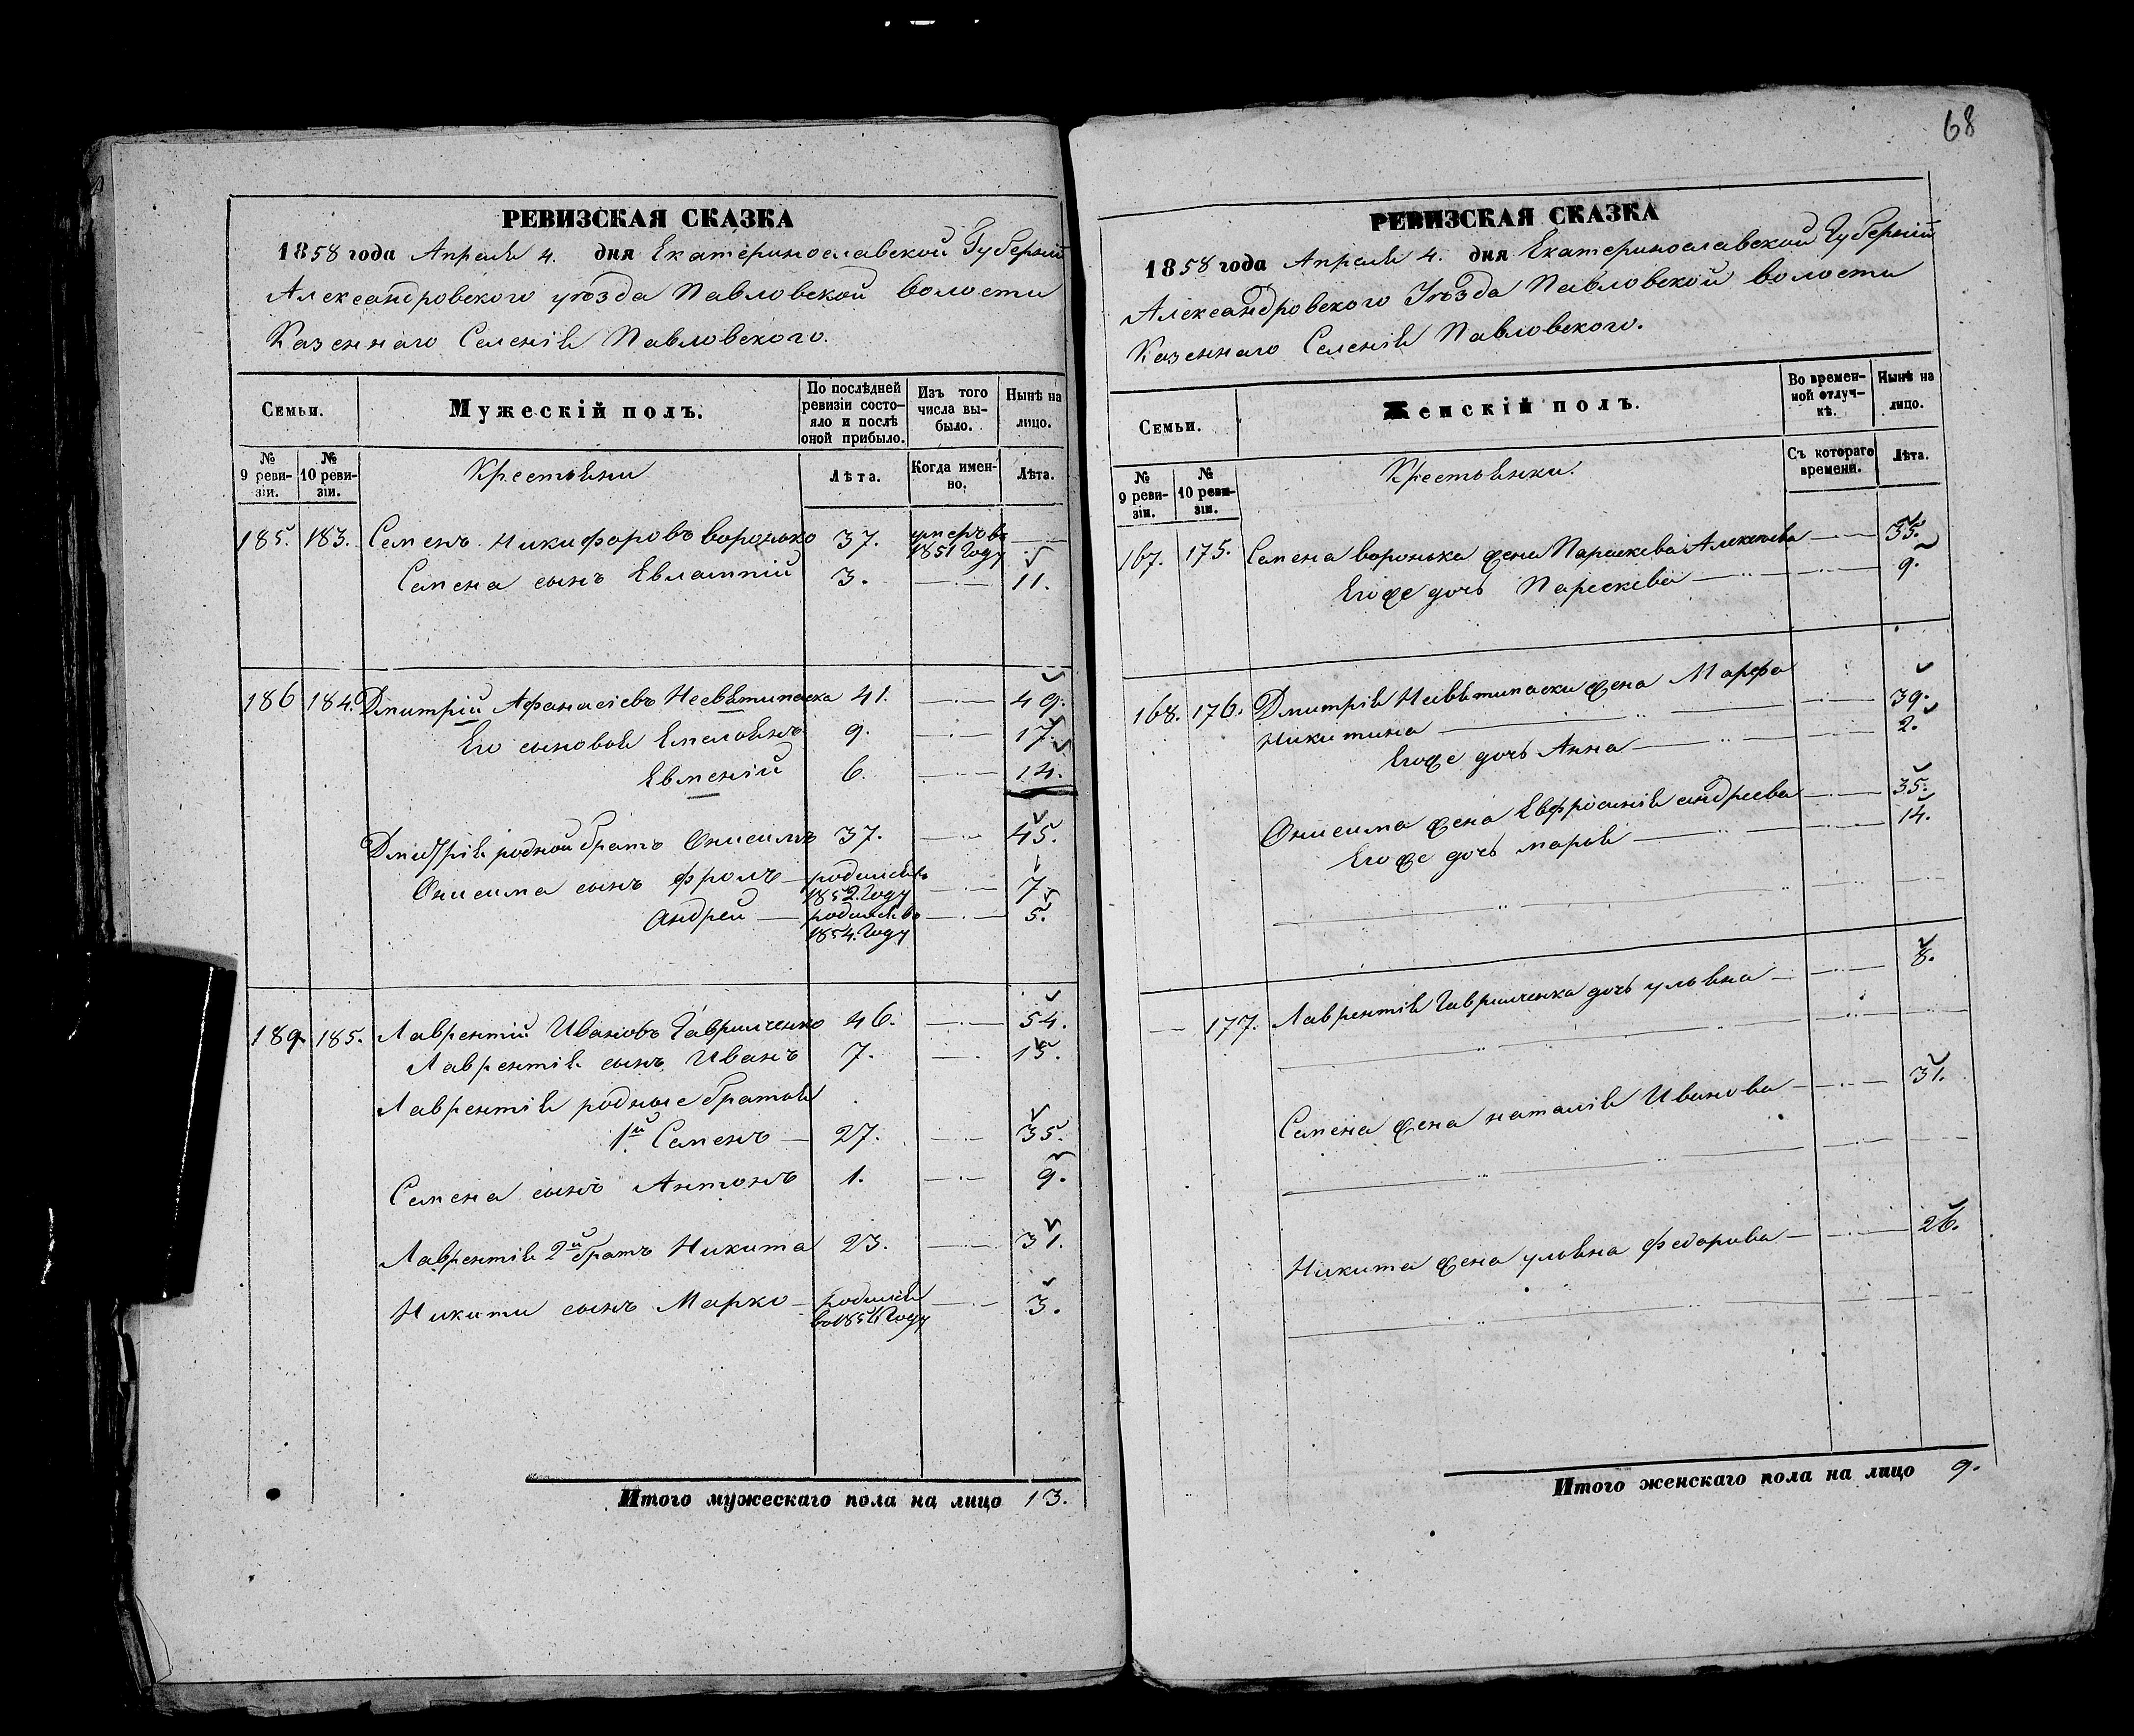 68
РЕВИЗСКАЯ СКАЗКА
1858 года Апреля 4. дня Екатеринославской Губерніи
Александровского уѣзда Павловской волости
Казеннаго Селенія Павловского.
Семьи.
Мужескій полъ.
По послѣдней ревизіи состояло и послѣ оной прибыло.
Изъ того числа выбыло.
Нынѣ на лицо.
№ 9 ревизіи.
№ 10 ревизіи.
Крестьяни
Лѣта.
Когда именно.
Лѣта.
185. 183. Семенъ Никифоровъ Воронько 37. умеръ въ 1851 Году
Семена сынъ Евлампій 3. 11.
186 184. Дмитрій Афанасіевъ 41. 49.
Его сыновья Емельянъ 9. 17.
Евменій 6. 14.
Дмитрія родной братъ Онисимъ 37. 45.
Онисима сынъ Фролъ родился въ 1852. Году 7.
Андрей родился во 1854. Году 5.
189. 185. Лаврентій Ивановъ Гавриленко 46. 54.
Лаврентія сынъ Иванъ 7. 15.
Лаврентія родные братья
1й Семенъ 27. 35.
Семена сынъ Антонъ 1. 9.
Лаврентія 2й братъ Никита 23. 31.
Никити сынъ Марко родился 3.
Итого мужескаго пола на лицо 13.
РЕВИЗСКАЯ СКАЗКА
1858 года Апреля 4. дня Екатеринославской Губерніи
Александровского Уѣзда Павловской волости
Казеннаго Селенія Павловского.
Семьи.
Женскій полъ.
Во временной отлучкѣ.
Нынѣ на лицо.
№ 9 ревизіи.
№ 10 ревизіи.
Крестьянки.
Съ котораго времени.
Лѣта.
167. 175. Семена Воронька жена Параскева 35.
Егоже дочь Параскева 9.
168. 176. Дмитрія жена Марфа
Никитина 39.
Егоже дочь Анна 2.
Онисима жена Евфросинія андреева 35.
Егоже дочь марья 14.
177. Лаврентія Гавриленка дочь ульяна 8.
Семена жена наталія Иванова 31.
Никита жена ульяна Федорова 26.
Итого женскаго пола на лицо 9.